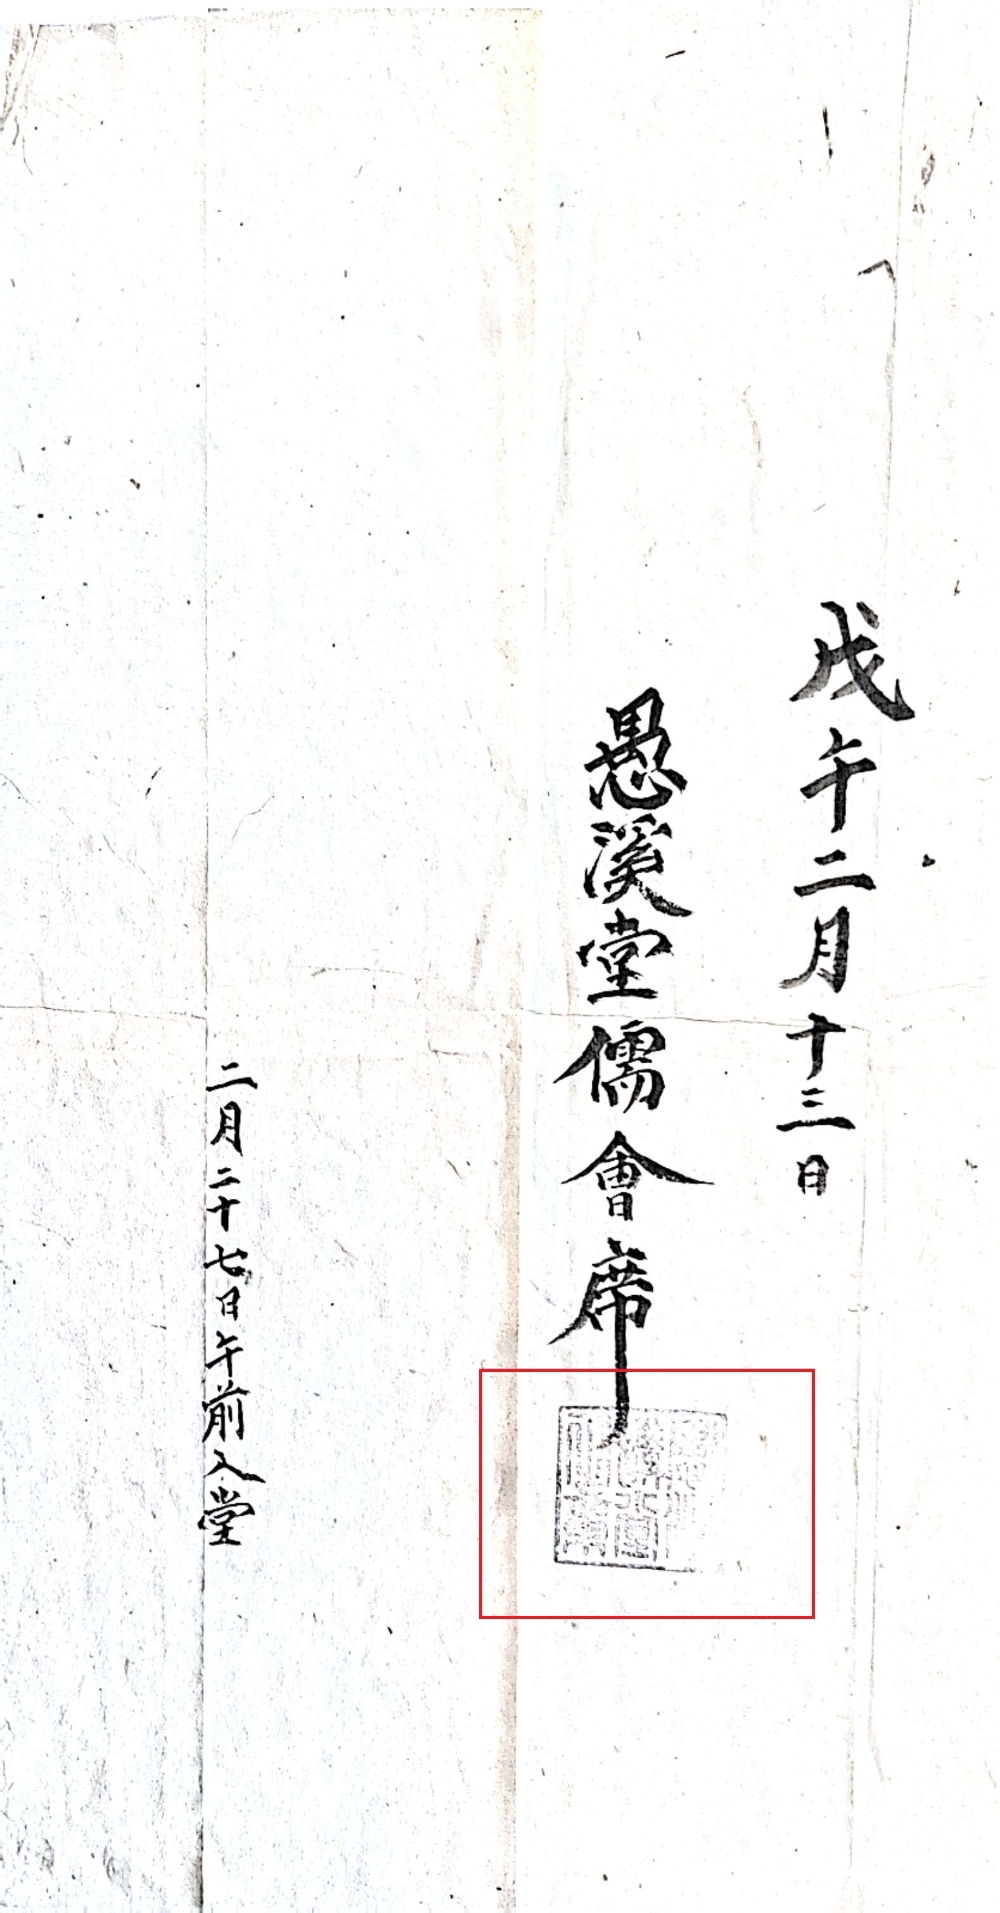 戊午二月十三日
愚溪堂儒會席
二月二十七日午前入堂